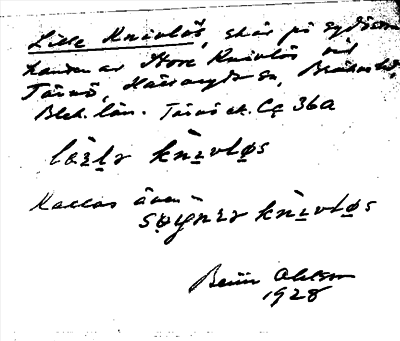 Lille Knivlös, skär på sydöstra
kanten av Store Knivlös vid
Tärnö, Hällaryds sn, Bräkne hd,
Blek. län. Tärnö ek. Ca 36a
knɪvløs
Kallas även
knɪvløs
Ohlson
1928